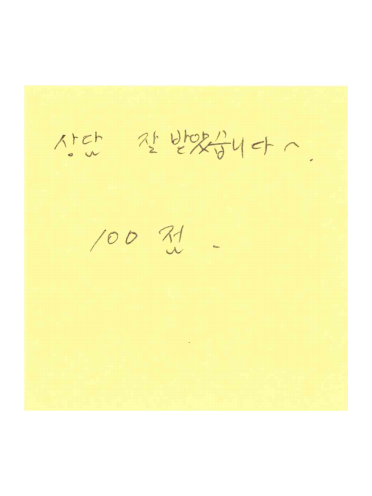 상담 잘 받았습니다^.
100 점.